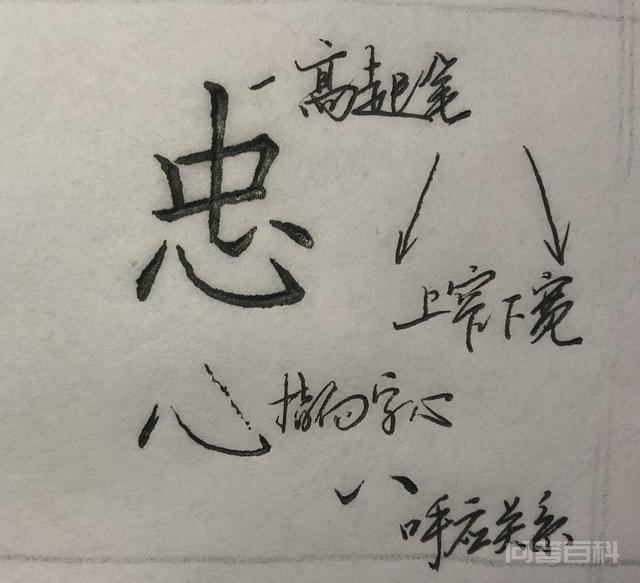 忠
高起笔
上窄下宽
心 指向字心
呼应关系
问答百科